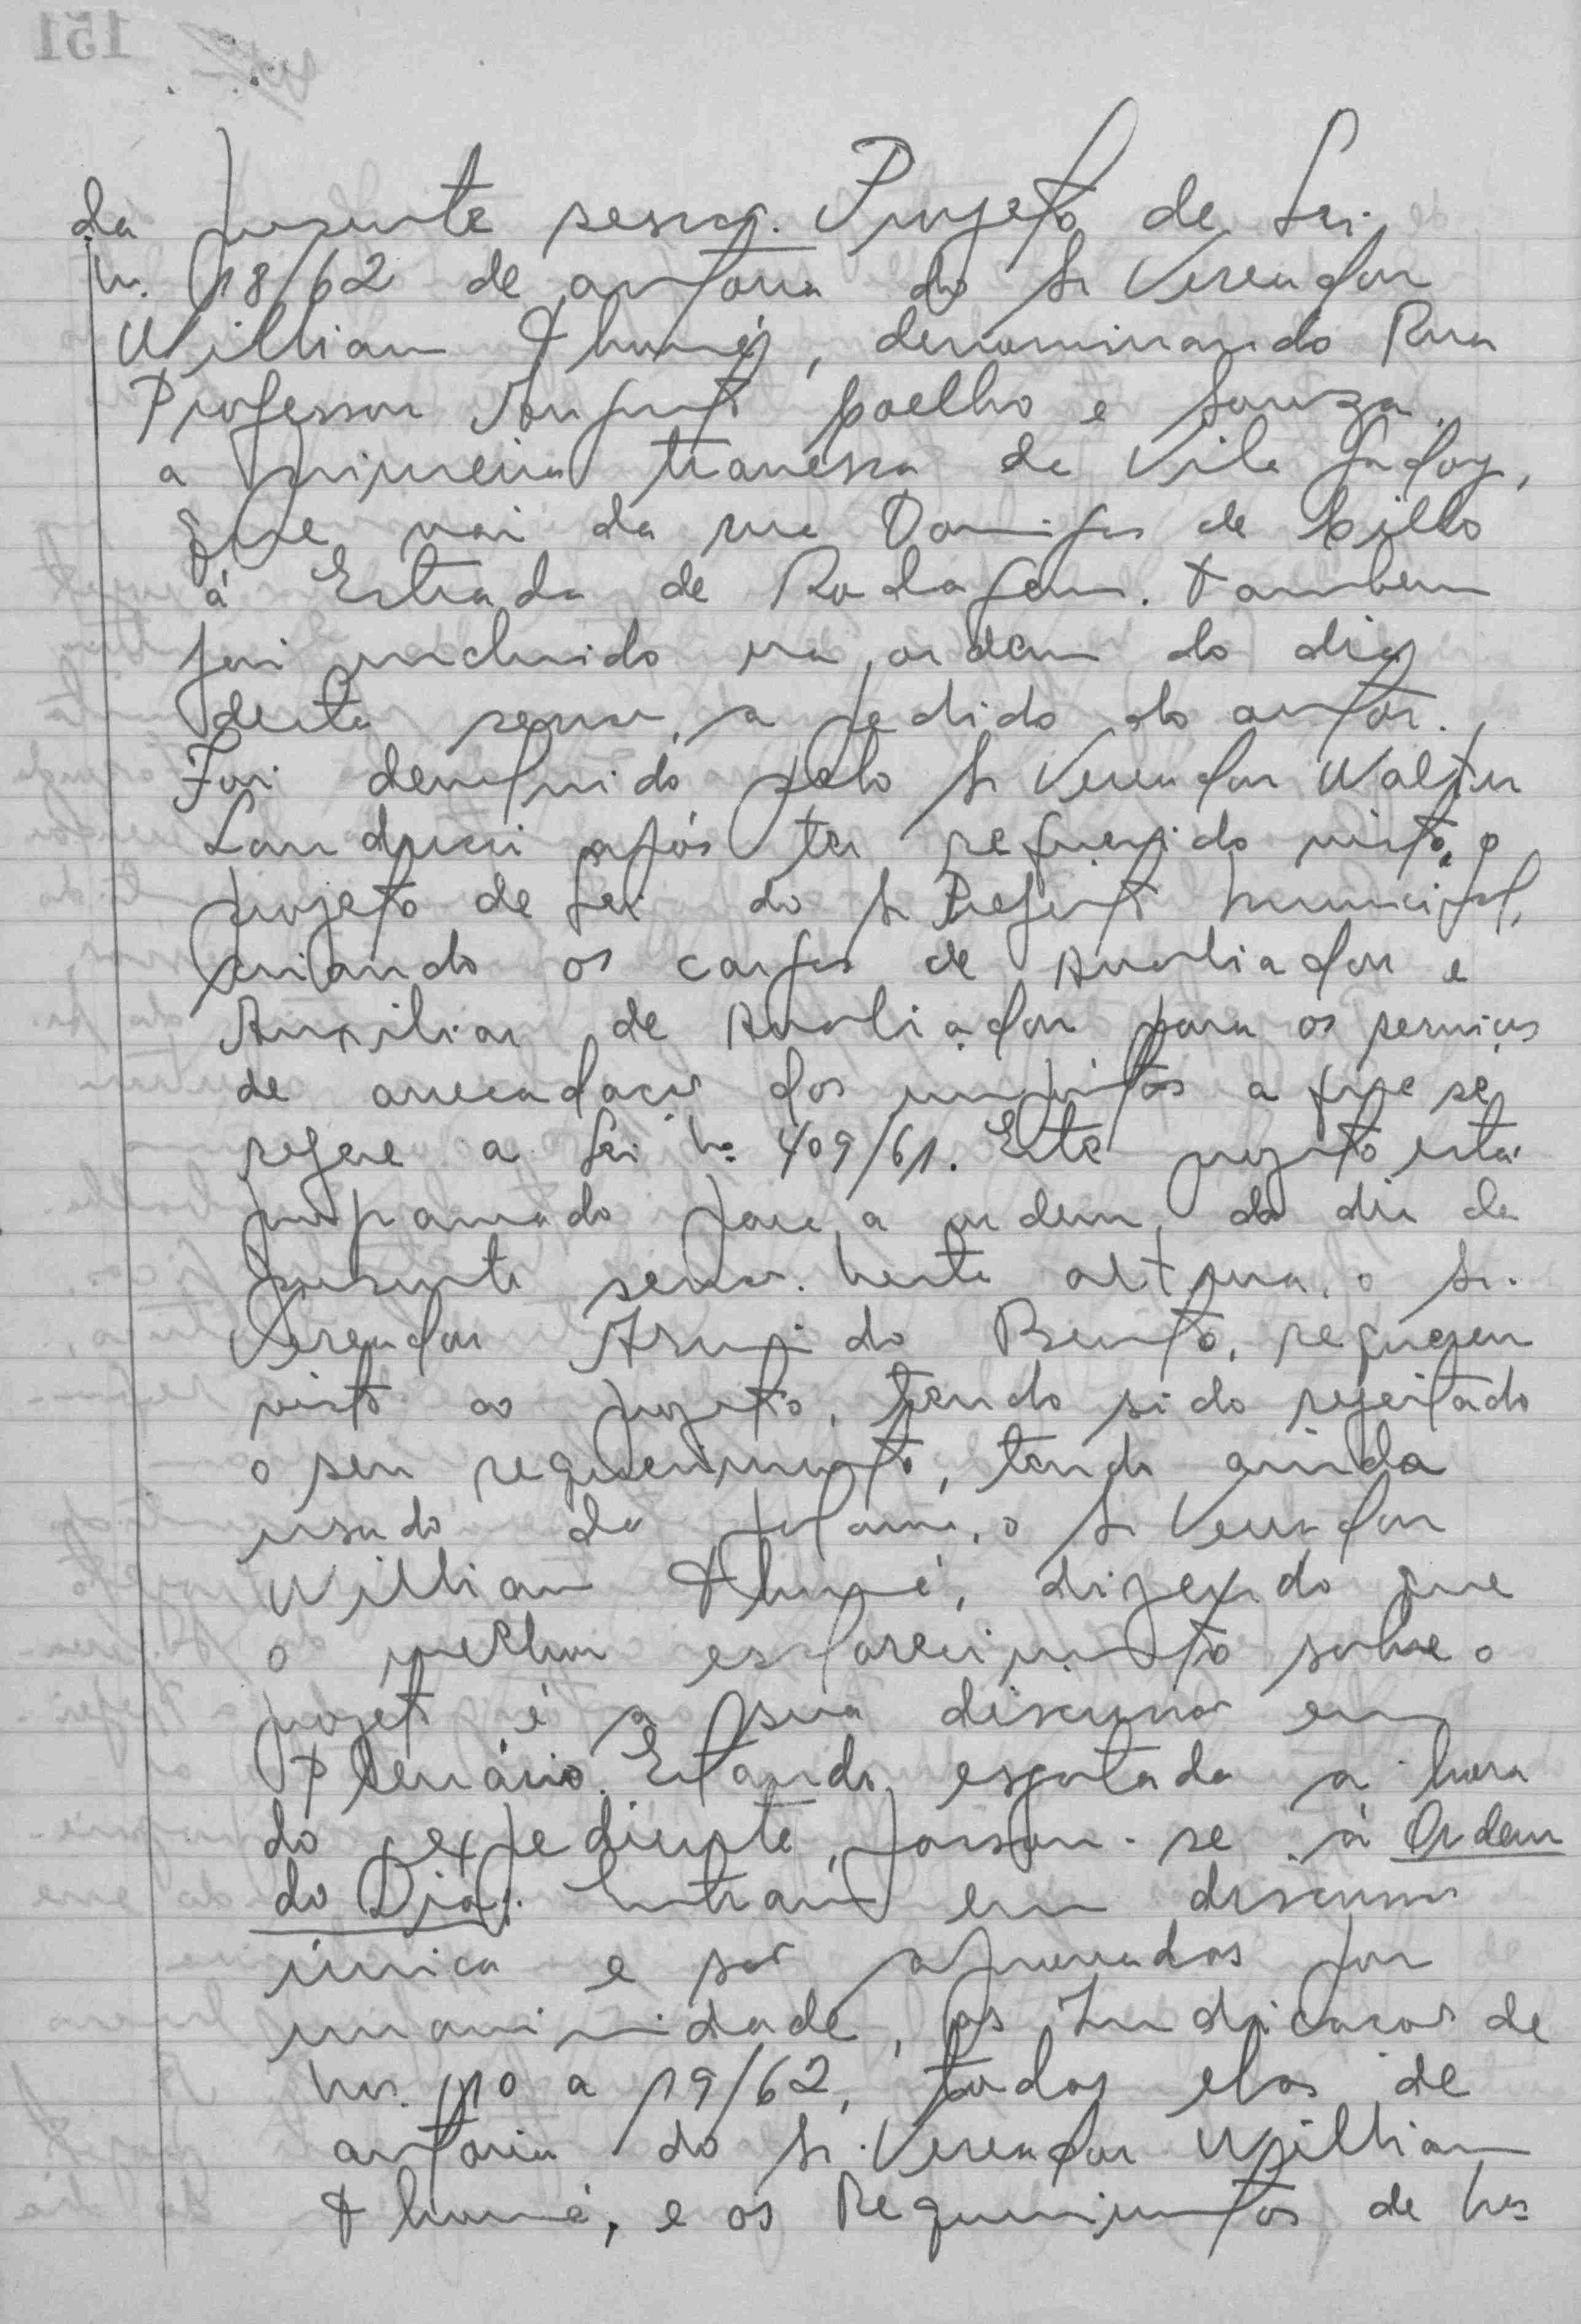 da presente sessão. Projeto de Lei
n. 18/62 de autoria do Sr Vereador
William Thomé, denominando Rua
Professor Coelho e Souza
a primeira travessa da Vila Godoy,
que vai da rua Domingos de Cillo
á Estrada de Rodagem. Tambem
foi incluido na ordem do dia
desta sessão, a pedido do autor.
Foi devolvido pelo Sr Vereador Walter
Landucci após ter requerido vista, o
projeto de Lei do Sr Prefeito Municipal,
criando os cargos de Avaliador e
Auxiliar de Avaliador para os serviços
de arrecadação dos impostos a que se
refere a Lei nº 409/61. Este projeto está
programado para a ordem do dia da
presente sessão. Nesta altura, o Sr.
Vereador Bento, requereu
vista ao projeto, tendo sido rejeitado
o seu requerimento, tendo ainda
usado da palavra, o Sr Vereador
William Thomé, dizendo que
o melhor esclarecimento sobre o
projeto é a sua discussão em
Plenário. Estando esgotada a hora
do expediente, passou-se á Ordem
do Dia: Entram em discussão
única e são aprovados por
unanimidade, as Indicações de
nos. 10 a 19/62, todas elas de
autoria do Sr. Vereador William
Thomé, e os Requerimentos de nos